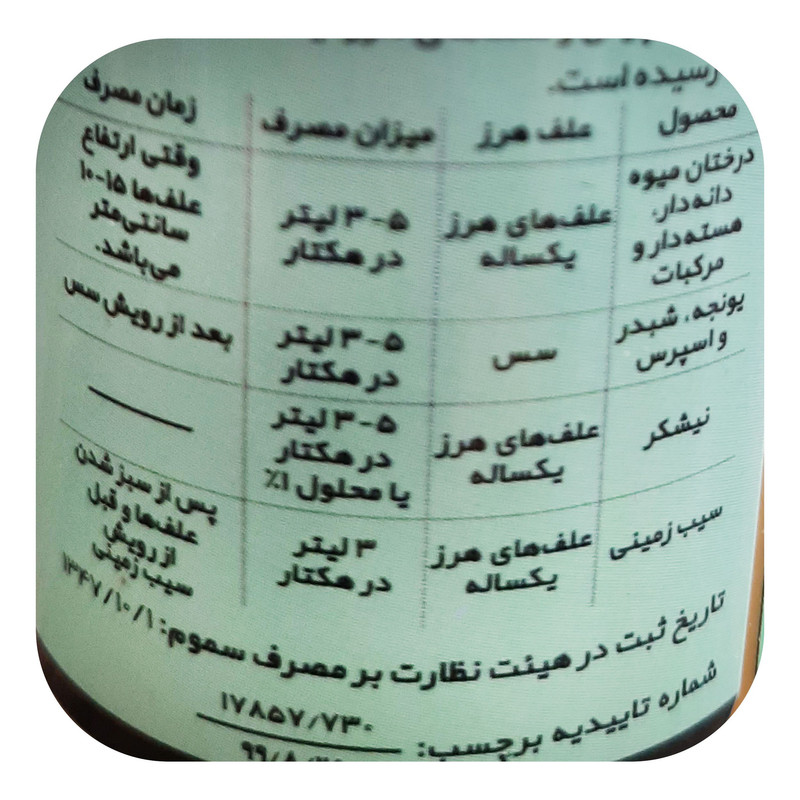 رسیده است.
محصول علف هرز میزان مصرف زمان مصرف
درختان میوه دانه‌دار، هسته‌دار و مرکبات علف‌های هرز یکساله ۳-۵ لیتر در هکتار وقتی ارتفاع علف‌ها ۱۵-۱۰ سانتی‌متر می‌باشد.
یونجه، شبدر و اسپرس سس ۳-۵ لیتر در هکتار بعد از رویش سس
نیشکر علف‌های هرز یکساله ۳-۵ لیتر در هکتار یا محلول ۱٪ ——
سیب زمینی علف‌های هرز یکساله ۳ لیتر در هکتار پس از سبز شدن علف‌ها و قبل از رویش سیب زمینی
تاریخ ثبت در هیئت نظارت بر مصرف سموم: ۱۳۴۷/۱۰/۱
شماره تاییدیه برچسب: ۱۷۸۵۷/۷۳۰